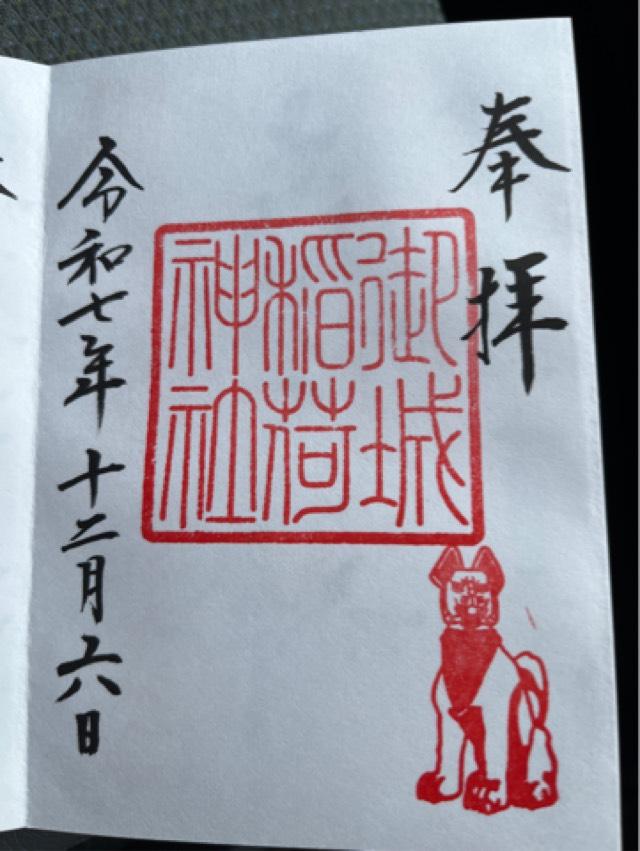 奉拝
御城
稲荷
神社
令和七年十二月六日